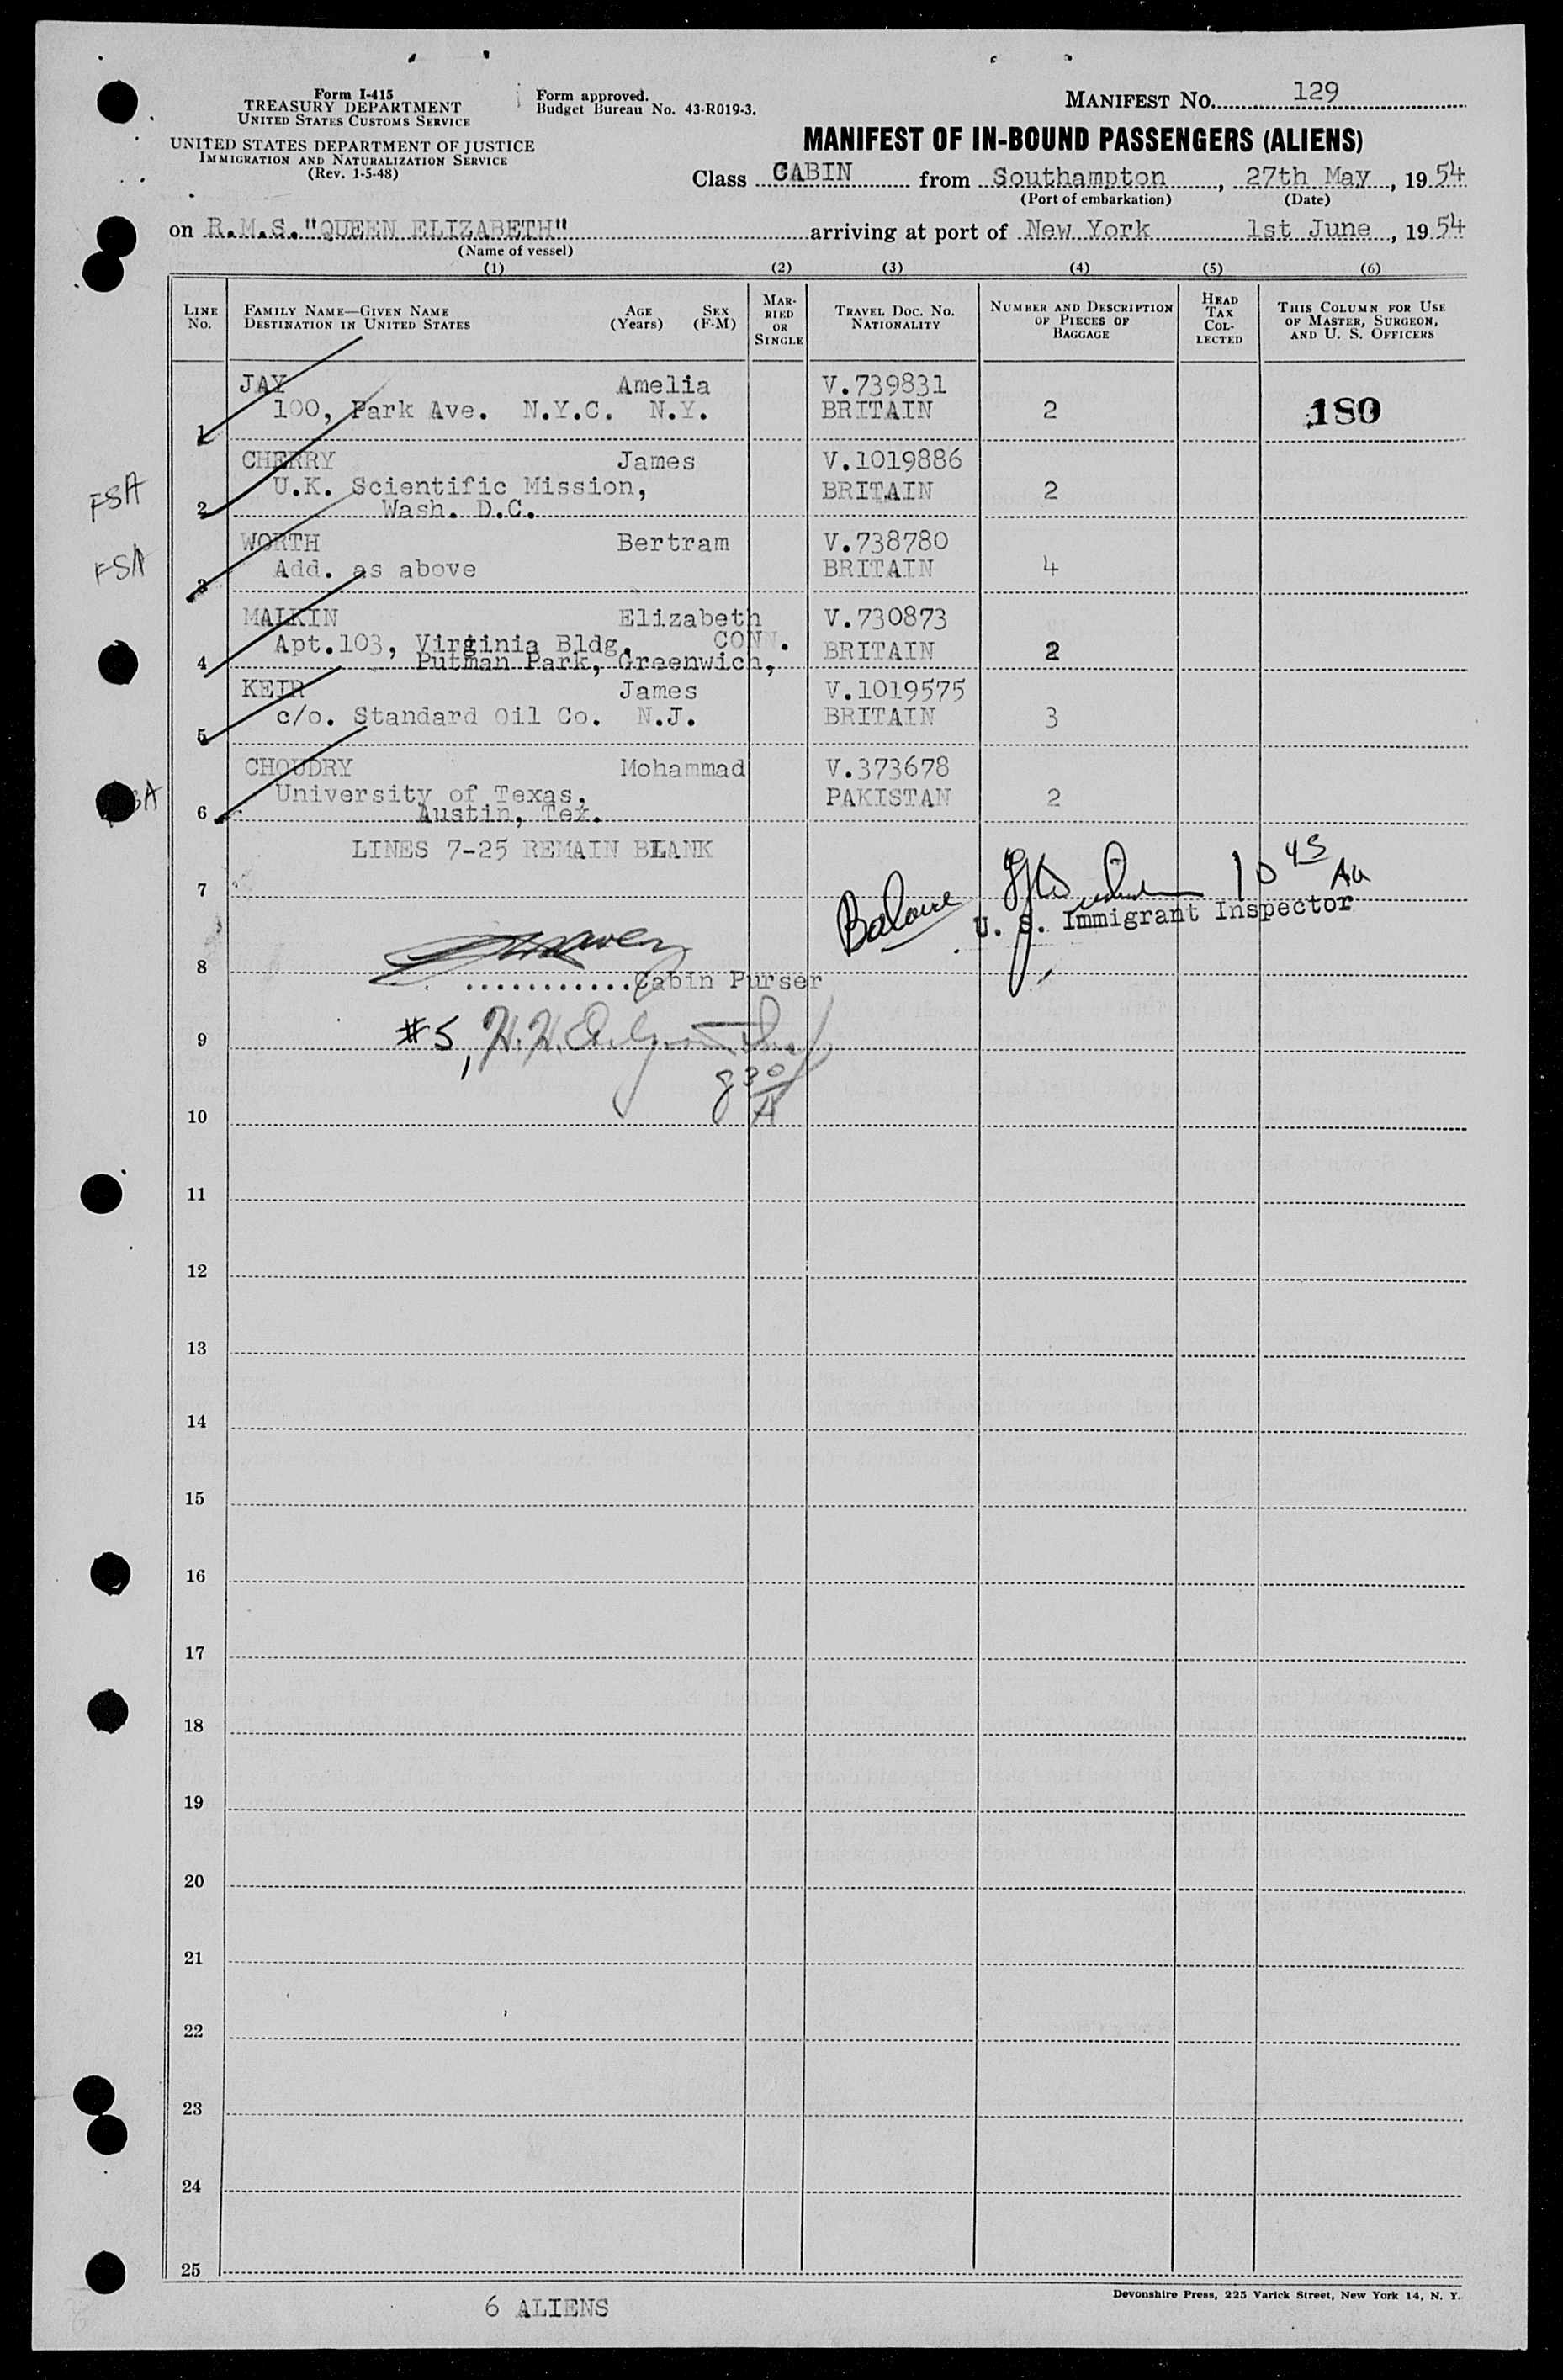 Form I-415
TREASURY DEPARTMENT
UNITED STATES CUSTOMS SERVICE
UNITED STATES DEPARTMENT OF JUSTICE
IMMIGRATION AND NATURALIZATION SERVICE
(Rev. 1-5-48)
Form approved.
Budget Bureau No. 43-R019-3.
MANIFEST NO. 129
MANIFEST OF IN-BOUND PASSENGERS (ALIENS)
Class CABIN from Southampton, 27th May, 1954
(Port of embarkation) (Date)
on R.M.S. "QUEEN ELIZABETH" arriving at port of New York 1st June, 1954
(Name of vessel)
(1) (2) (3) (4) (5) (6)
LINE No. FAMILY NAME—GIVEN NAME DESTINATION IN UNITED STATES AGE (Years) SEX (F-M) MARRIED OR SINGLE TRAVEL DOC. NO. NATIONALITY NUMBER AND DESCRIPTION OF PIECES OF BAGGAGE HEAD TAX COLLECTED THIS COLUMN FOR USE OF MASTER, SURGEON, AND U. S. OFFICERS
JAY Amelia V.739831
1 100, Park Ave. N.Y.C. N.Y. BRITAIN 2 180
CHERRY James V.1019886
FSA U.K. Scientific Mission, BRITAIN 2
2 Wash. D.C.
WORTH Bertram V.738780
FSA 3 Add. as above BRITAIN 4
MALKIN Elizabeth V.730873
Apt.103, Virginia Bldg. CONN. BRITAIN 2
4 Putman Park, Greenwich,
KEIR James V.1019575
5 c/o. Standard Oil Co. N.J. BRITAIN 3
CHOUDRY Mohammad V.373678
University of Texas, PAKISTAN 2
6 Austin, Tex.
LINES 7-25 REMAIN BLANK
7
10 45 AM
U. S. Immigrant Inspector
8
Cabin Purser
9 #5, H.H.
8 30 A
10
11
12
13
14
15
16
17
18
19
20
21
22
23
24
25
Devonshire Press, 225 Varick Street, New York 14, N. Y.
6 ALIENS